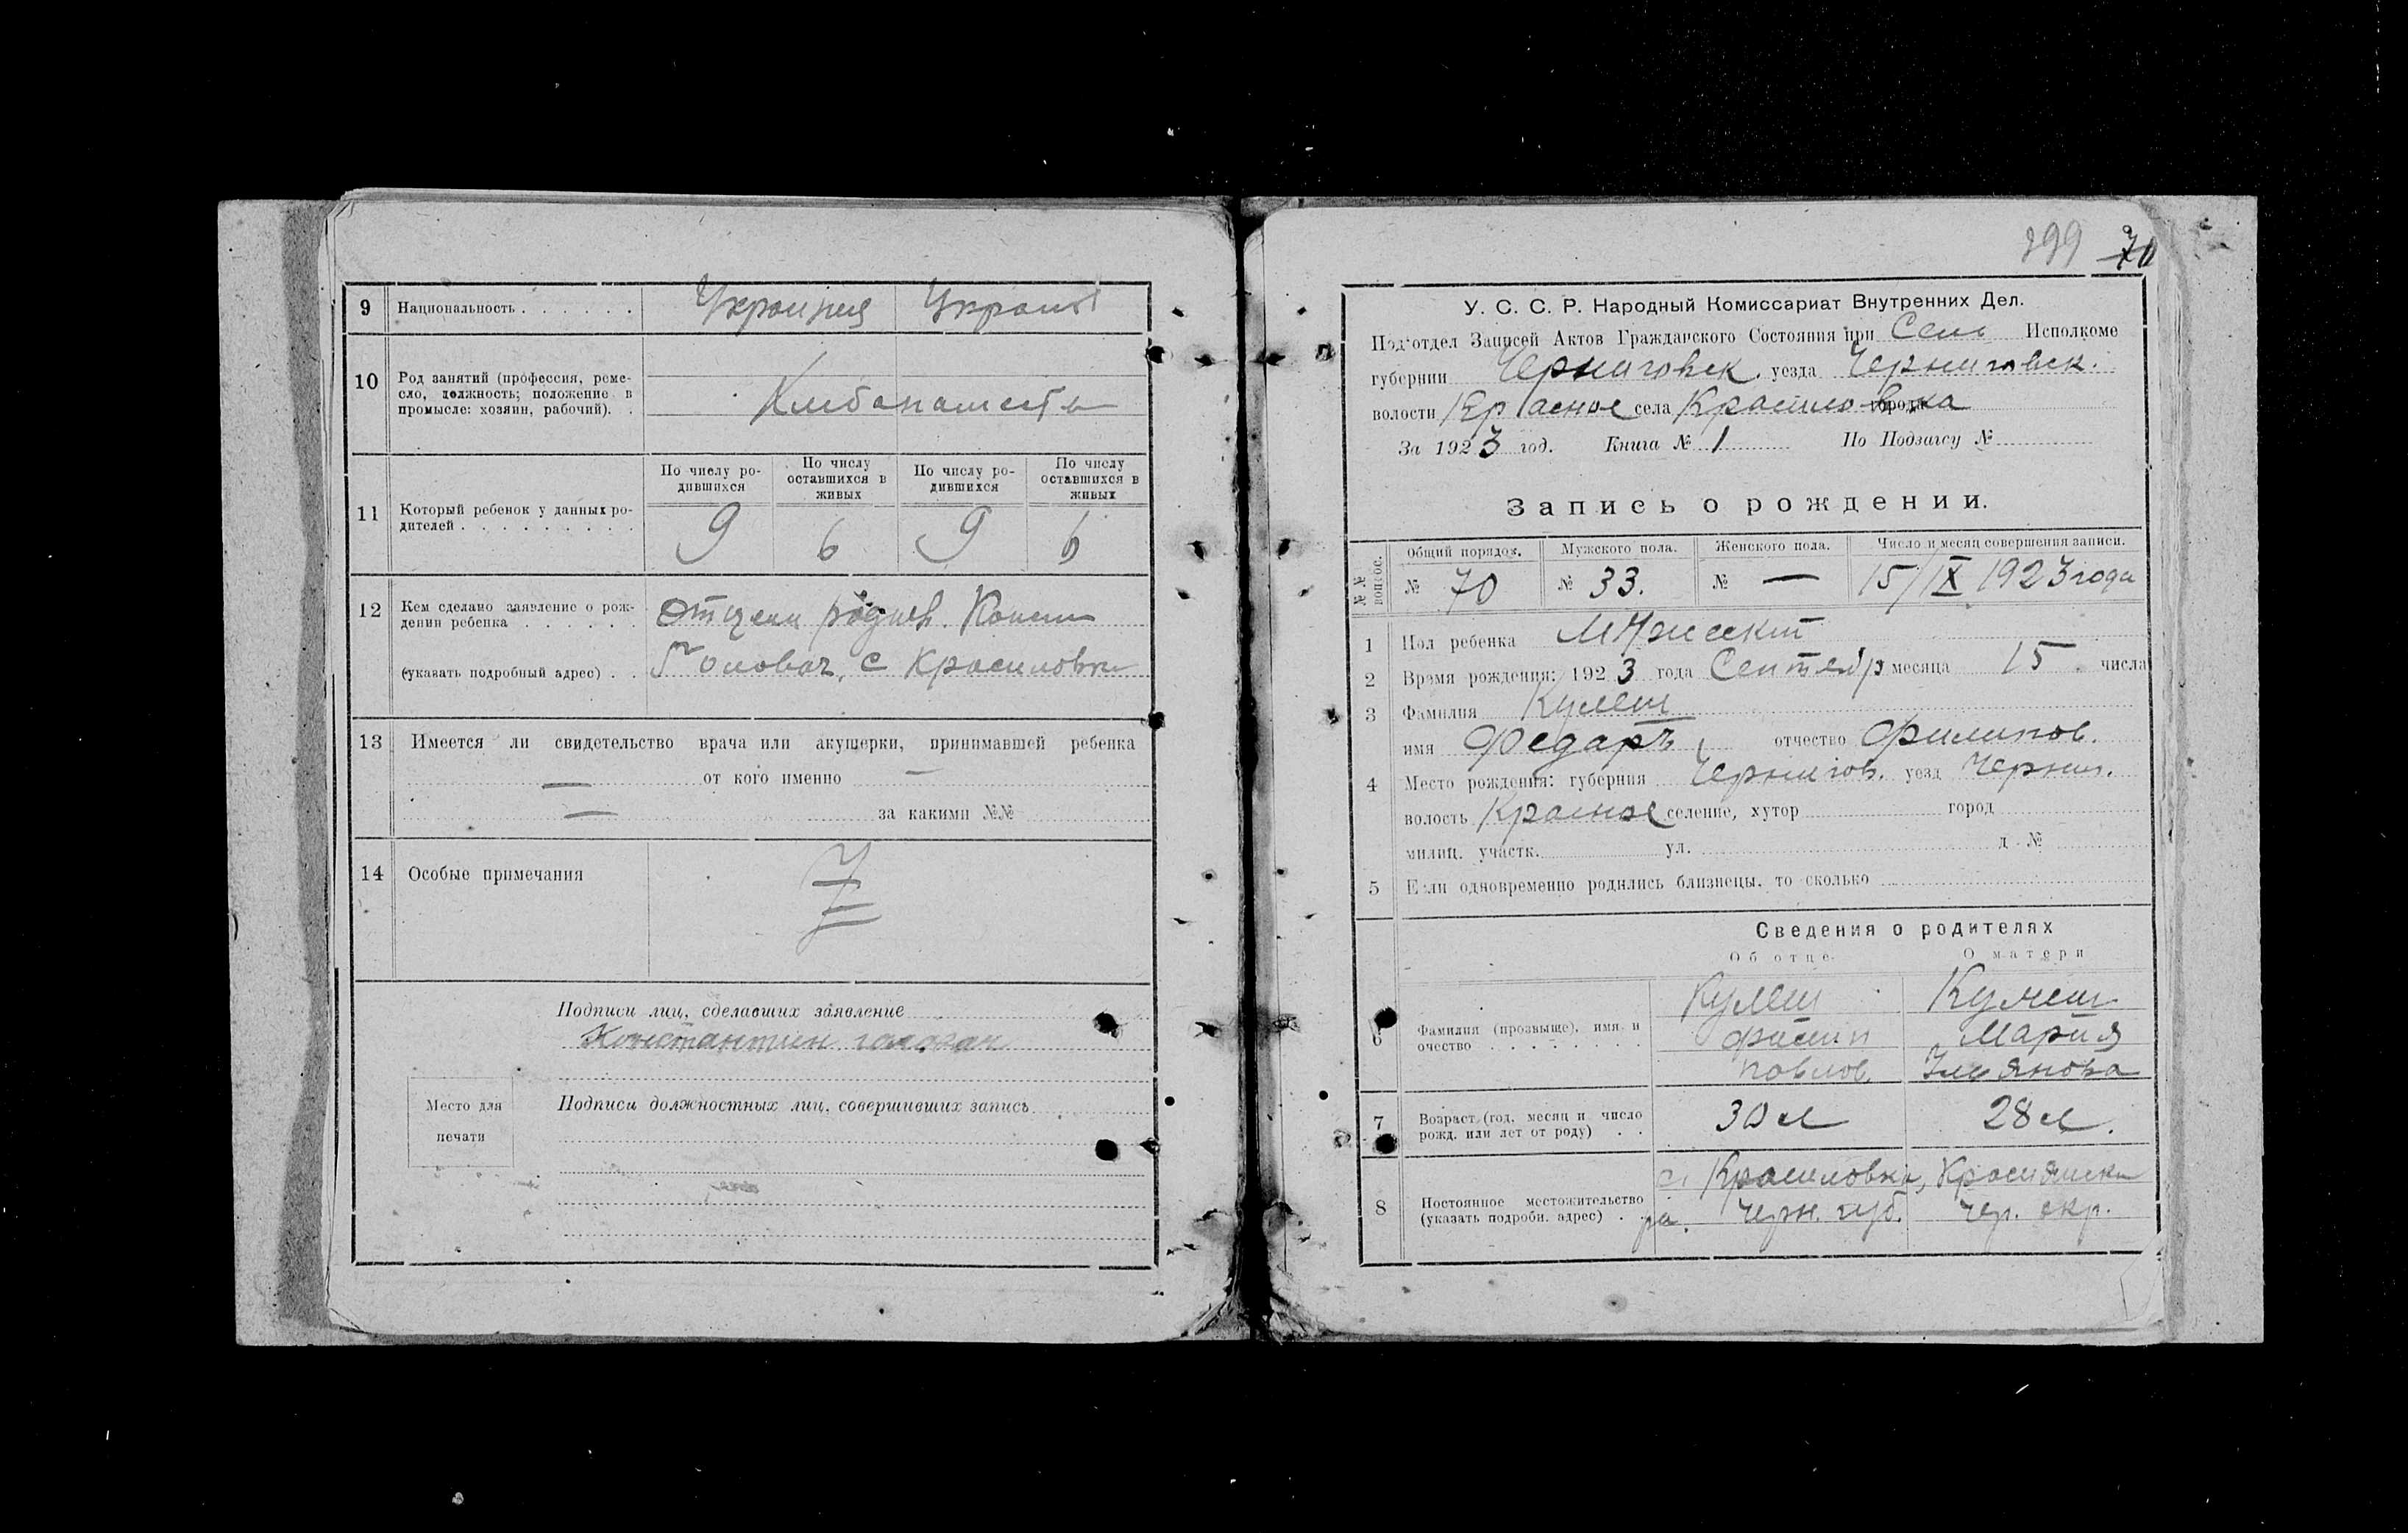 9 Национальность . . . . . .
10 Род занятий (профессия, реме-
сло, должность; положение в
промысле: хозяин, рабочий). .
Хлебопашество
11 Который ребенок у данных ро-
дителей . . . . . . . . .
По числу ро-
дившихся
По числу
оставшихся в
живых
По числу ро-
дившихся
По числу
оставшихся в
живых
9 6 9 6
12 Кем сделано заявление о рож-
дении ребенка . . . . . .
Отцем
(указать подробный адрес) . .
с Красиловки
13 Имеется ли свидетельство врача или акушерки, принимавшей ребенка
— от кого именно —
— за какими №№
14 Особые примечания
Подписи лиц, сделавших заявление
Константин
Подписи должностных лиц, совершивших запись
Место для
печати
399 70
У. С. С. Р. Народный Комиссариат Внутренних Дел.
Под'отдел Записей Актов Гражданского Состояния при Сель Исполкоме
губернии Черниговск. уезда Черниговск.
волости Красное села Красиловка города
За 1923 год. Книга № 1 По Подзагсу №
Запись о рождении.
№№ вопрос.
Общий порядок. Мужского пола. Женского пола. Число и месяц совершения записи.
№ 70 № 33. № — 15/IX 1923 года
1 Пол ребенка Мужеский
2 Время рождения: 1923 года Сентябр месяца 15 числа
3 Фамилия Кулеш
имя Федаръ отчество Филипов.
4 Место рождения: губерния Чернигов. уезд Черниг.
волость Красное селение, хутор город
милиц. участк. ул. д. №
5 Если одновременно родились близнецы, то сколько
Сведения о родителях
Об отце О матери
6 Фамилия (прозвыще), имя и
очество . . . . . . . .
Кулеш Кулеш
Филип Мария
Павлов.
7 Возраст (год, месяц и число
рожд. или лет от роду) . .
30 л 28 л.
8 Постоянное местожительство
(указать подробн. адрес) . .
с. Красиловка, Краснянски
ра. Черн. губ. Чер. окр.